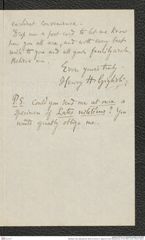 earliest convenience.
Drop me a post-card to let me know
how you all are, and with every best
wish to you and all your household,
Believe me
Ever yours truly
Henry H.
P.S. Could you send me at once a
specimen of Luzula ? You
would greatly oblige me.